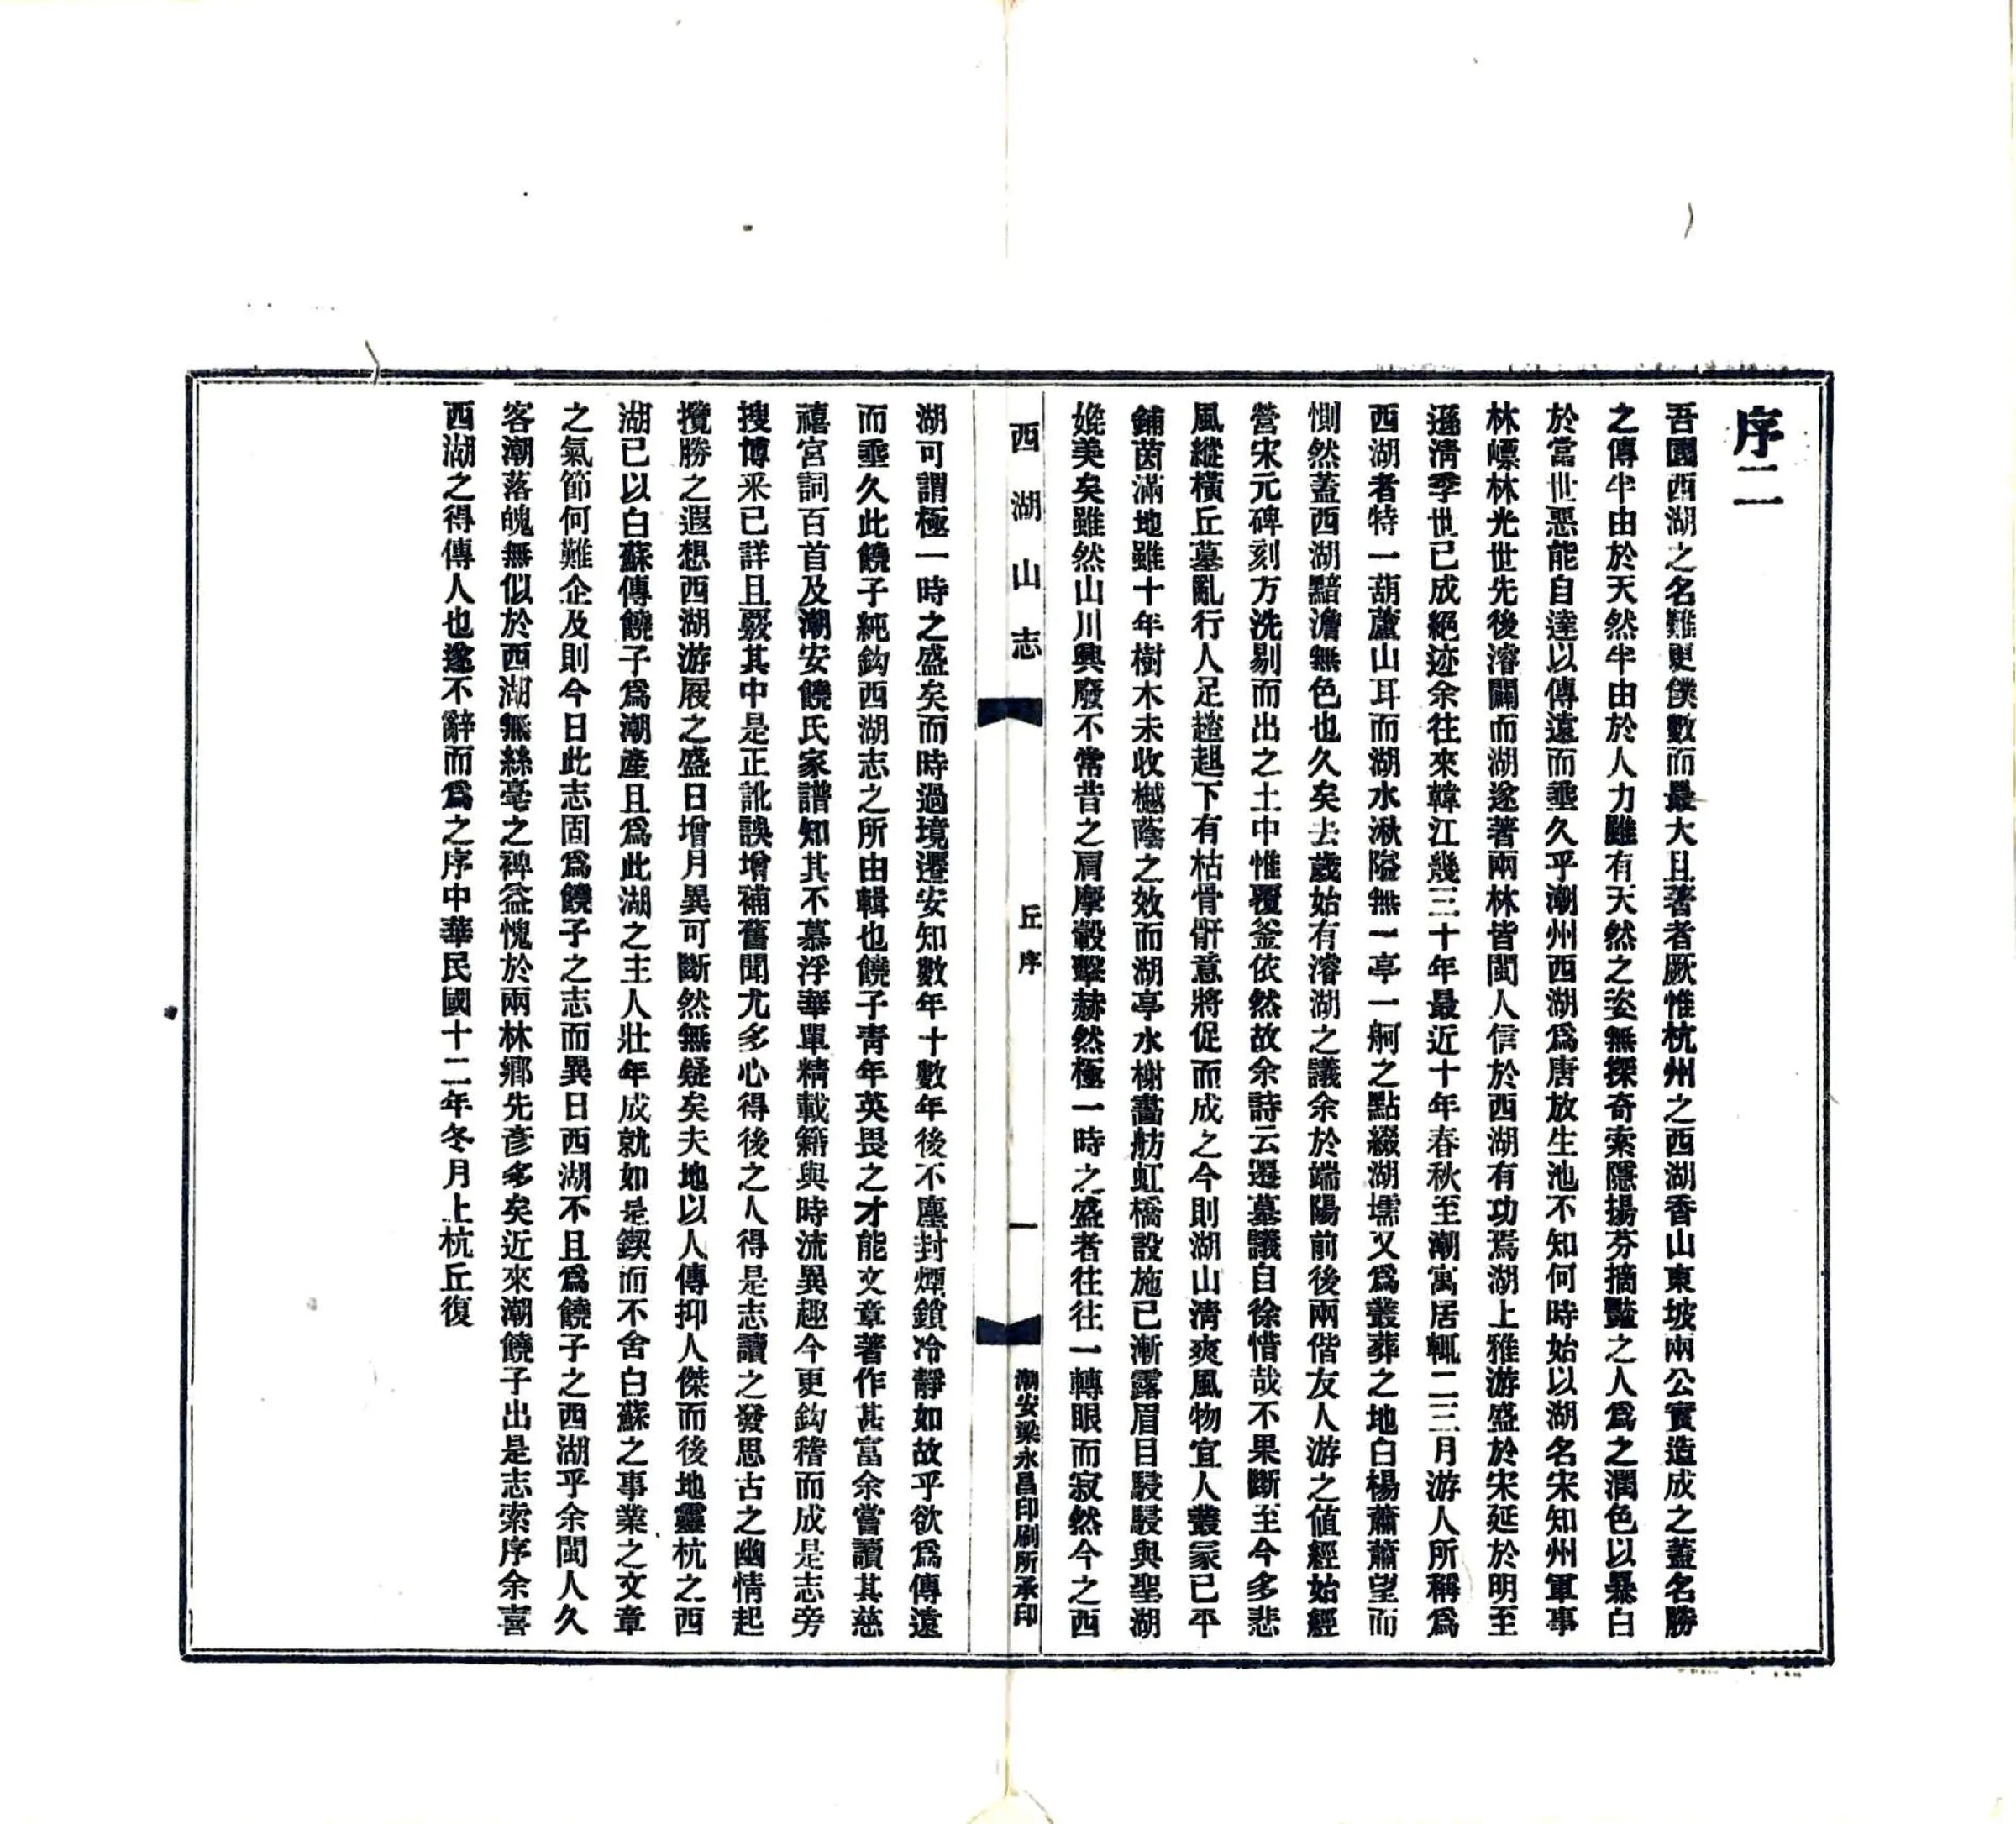 序二
吾國西湖之名難更僕數而最大且著者厥惟杭州之西湖香山東坡兩公實造成之蓋名勝
之傳半由於天然半由於人力雖有天然之姿無探奇索隱揚芬摘豔之人爲之潤色以暴白
於當世惡能自達以傳遠而垂久乎潮州西湖爲唐放生池不知何時始以湖名宋知州軍事
林嶂林光世先後濬闢而湖遂著兩林皆閩人信於西湖有功焉湖上雅游盛於宋延於明至
遜清季世已成絕迹余往來韓江幾三十年最近十年春秋至潮寓居輒二三月游人所稱爲
西湖者特一葫蘆山耳而湖水湫隘無一亭一舸之點綴湖壖又爲叢葬之地白楊蕭蕭望而
惻然蓋西湖黯澹無色也久矣去歲始有濬湖之議余於端陽前後兩偕友人游之値經始經
營宋元碑刻方洗剔而出之土中惟覆釜依然故余詩云遷墓議自徐惜哉不果斷至今多悲
風縱橫丘墓亂行人足趑趄下有枯骨骭意將促而成之今則湖山清爽風物宜人叢冢已平
鋪茵滿地雖十年樹木未收樾蔭之效而湖亭水榭畵舫虹橋設施已漸露眉目駸駸與聖湖
媲美矣雖然山川興廢不常昔之肩摩轂擊赫然極一時之盛者往往一轉眼而寂然今之西
西湖山志
丘序
一
潮安梁永昌印刷所承印
湖可謂極一時之盛矣而時過境遷安知數年十數年後不塵封煙鎖冷靜如故乎欲爲傳遠
而垂久此饒子純鈎西湖志之所由輯也饒子青年英畏之才能文章著作甚富余嘗讀其慈
禧宮詞百首及潮安饒氏家譜知其不慕浮華單精載籍與時流異趣今更鈎稽而成是志旁
搜博采已詳且覈其中是正訛誤增補舊聞尤多心得後之人得是志讀之發思古之幽情起
攬勝之遐想西湖游屐之盛日增月異可斷然無疑矣夫地以人傳抑人傑而後地靈杭之西
湖已以白蘇傳饒子爲潮產且爲此湖之主人壯年成就如是鍥而不舍白蘇之事業之文章
之氣節何難企及則今日此志固爲饒子之志而異日西湖不且爲饒子之西湖乎余閩人久
客潮落魄無似於西湖無絲毫之裨益愧於兩林鄉先彥多矣近來潮饒子出是志索序余喜
西湖之得傳人也遂不辭而爲之序中華民國十二年冬月上杭丘復